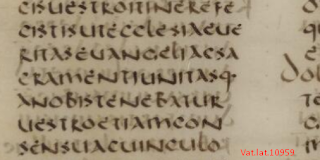 CISUESTROITINEREFE
CISTISUTECCLESIAEUE
RITASEUANGELIACSA
CRAMENTIUNITASQ·
ANOBISTENEBATUR
UESTROETIAMCON
SENSUACUINCULO
Vat.lat.10959.